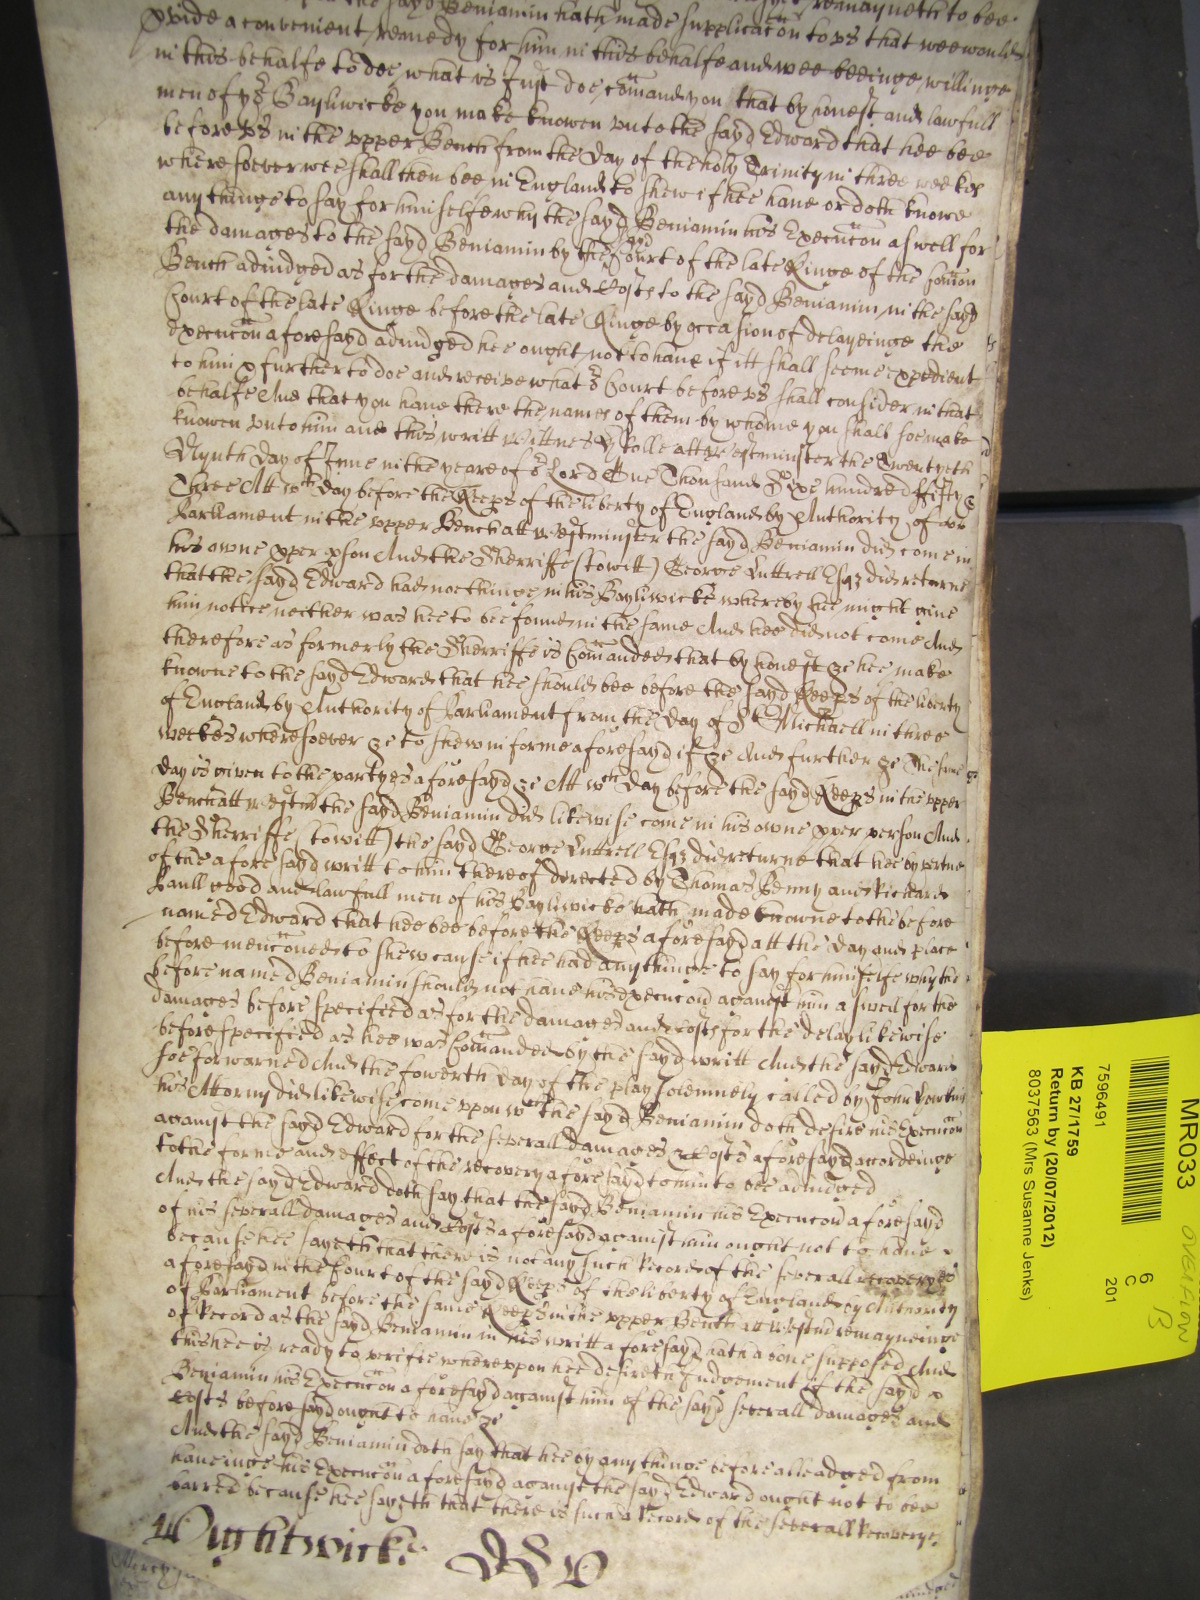 the sayd Beniamin hath made supplicacon to vs that wee would
pvide a convenient remedy for him in this behalfe and wee beeinge willinge
in this behalfe to doe what is Just doe comand you that by honest and lawfull
men of yor Bayliwicke you make knowen vnto the sayd Edward that hee bee
before vs in the vpper Bench from the day of the holy Trinity in three weekes
wheresoever wee shall then bee in England to shew if hee haue or doth knowe
any thinge to say for himselfe why the sayd Beniamin his Execucon aswell for
the damages to the sayd Beniamin by the sayd Court of the late Kinge of the Comon
Bench adiudged as for the damages and Costs to the sayd Beniamin in the sayd
Court of the late Kinge before the late Kinge by occasion of delayeinge the
Execucon aforesayd adiudged hee ought not to haue if itt shall seeme expedient
to him & further to doe and receive what or Court before vs shall consider in that
behalfe And that you haue there the names of them by whome you shall soe make
knowen vnto him and this writt Wittnes H Rolle att Westminster the Twentyeth
Nynth day of June in the yeare of or Lord One Thousand Sixe hundred ffifty &
Three Att wch day before the Keeps of the liberty of England by Authority of
Parliament in the vpper Bench att Westminster the sayd Beniamin did come in
his owne pper pson And the Sherriffe (to witt) George Luttrell Esqr did returne
that the sayd Edward had noethinge in his Bayliwicke whereby hee might give
him notice neither was hee to bee found in the same And hee did not come And
therefore as formerly the Sherriffe is Comanded that by honest &c hee make
knowne to the sayd Edward that hee should bee before the sayd Keeps of the liberty
of England by Authority of Parliament from the day of St Michaell in three
weekes wheresoever &c to shew in forme aforesayd if &c And further &c The same
day is given to the partyes aforesayd &c Att wch day before the sayd Keeps in the vpper
Bench att Westm the sayd Beniamin did likewise come in his owne pper person And
the Sherriffe (to witt) the sayd George Luttrell Esqr did returne that hee by vertue
of the aforesayd writt to him thereof directed by Thomas Penny and Richard
Paull good and lawfull men of his Bayliwicke hath made knowne to the before
named Edward that hee bee before the Keeps aforesayd att the day and place
before menconed to shew cause if hee had any thinge to say for himselfe why the
before named Beniamin should not haue his Execucon against him aswell for the
damages before specified as for the damages and costs for the delay likewise
before specified as hee was Comanded by the sayd writt And the sayd Edward
soe forwarned And the fowerth day of the play solemnely called by John
his Attorny did likewise come vppon wch the sayd Beniamin doth desire his Execucon
against the sayd Edward for the severall damages & Costs aforesayd accordeinge
to the forme and effect of the recovery aforesayd to him to bee adiudged
And the sayd Edward doth say that the sayd Beniamin his Execucon aforesayd
of his severall damages and Costs aforesayd against him ought not to haue
because hee sayeth that there is not any such Record of the severall recoveryes
aforesayd in the Court of the sayd Keeps of the liberty of England by Authority
of Parliament before the same Keeps in the vpper Bench att Westm remayneinge
of Record as the sayd Beniamin in his writt aforesayd hath above supposed And
this hee is ready to verifie wherevpon hee desireth Judgement if the sayd
Beniamin his Execucon aforesayd against him of the sayd severall damages and
Costs before sayd ought to haue &c
And the sayd Beniamin doth say that hee by any thinge before alleadged from
haveinge his Execucon aforesayd against the sayd Edward ought not to bee
barred because hee sayeth that there is such a Record of the severall Recoveryes
Wightwicke
MR033
OVERFLOW
B
6
C
201
7596491
KB 27/1759
Return by (20/07/2012)
8037563 (Mrs Susanne Jenks)